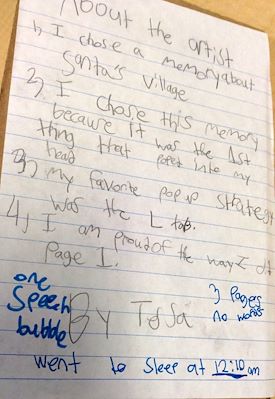 About the artist
1) I chose a memory about
Santa's Village
2) I chose this memory
because it was the 1st
thing that poped into my
head
3) my favorite pop up strategy
was the L tab.
4) I am proud of the way I did
Page 1.
one
Speech
bubble
By Tessa
3 Pages
no words
went to Sleep at 12:10 am